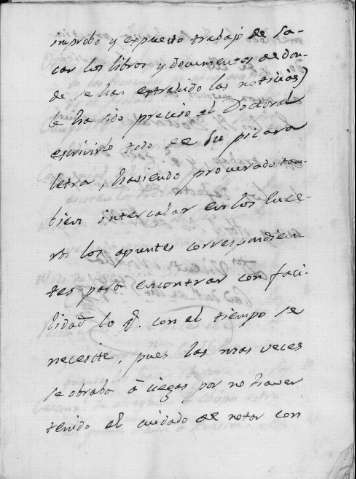 improbo y expuesto trabajo de sa-
car los libros y documentos de don-
de se han extrahido las noticias)
le ha sido preciso al Doctoral
escrivirlo todo de su picara
letra, haviendo procurado tam-
bien intercalar en los luce-
ros los apuntes correspondien-
tes para encontrar con faci-
lidad lo q.e con el tiempo se
necesite, pues las mas veces
se obraba à ciegas por no haver
tenido el cuidado de notar con